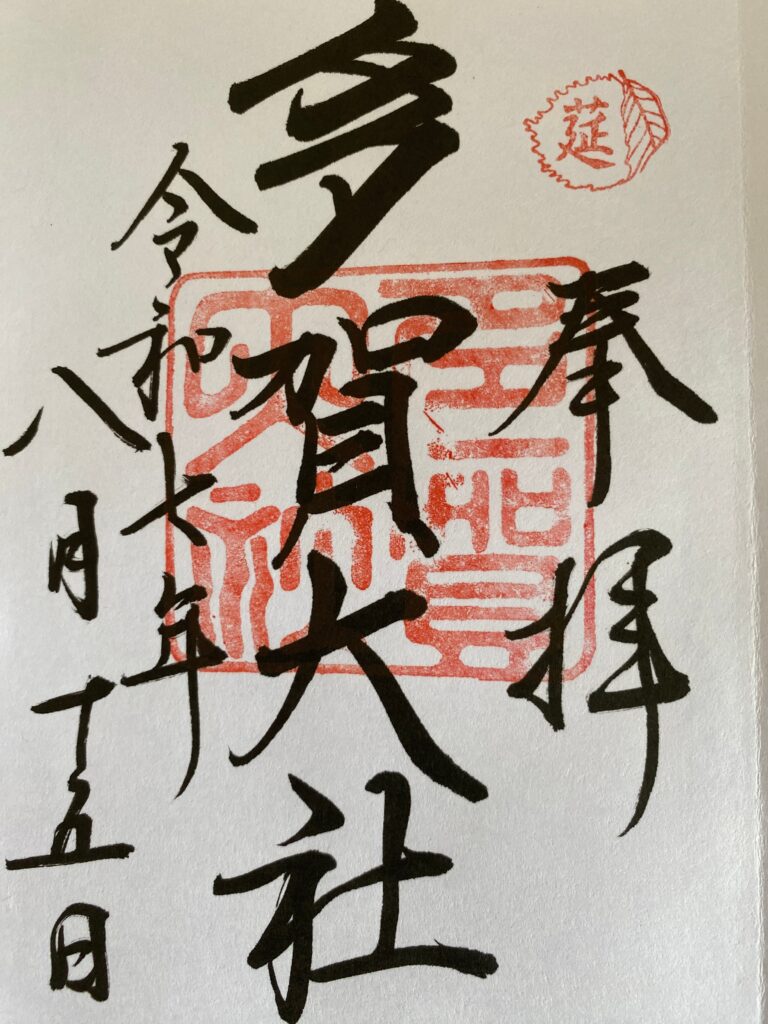 莚
奉拝
多賀大社
多賀
大社
令和七年
八月十五日